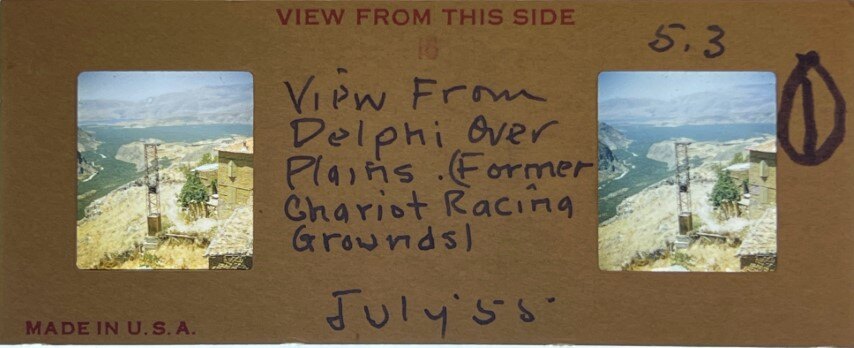 VIEW FROM THIS SIDE
16
5.3
1
View From
Delphi Over
Plains. (Former
Chariot Racing
Grounds)
July '55
MADE IN U.S.A.